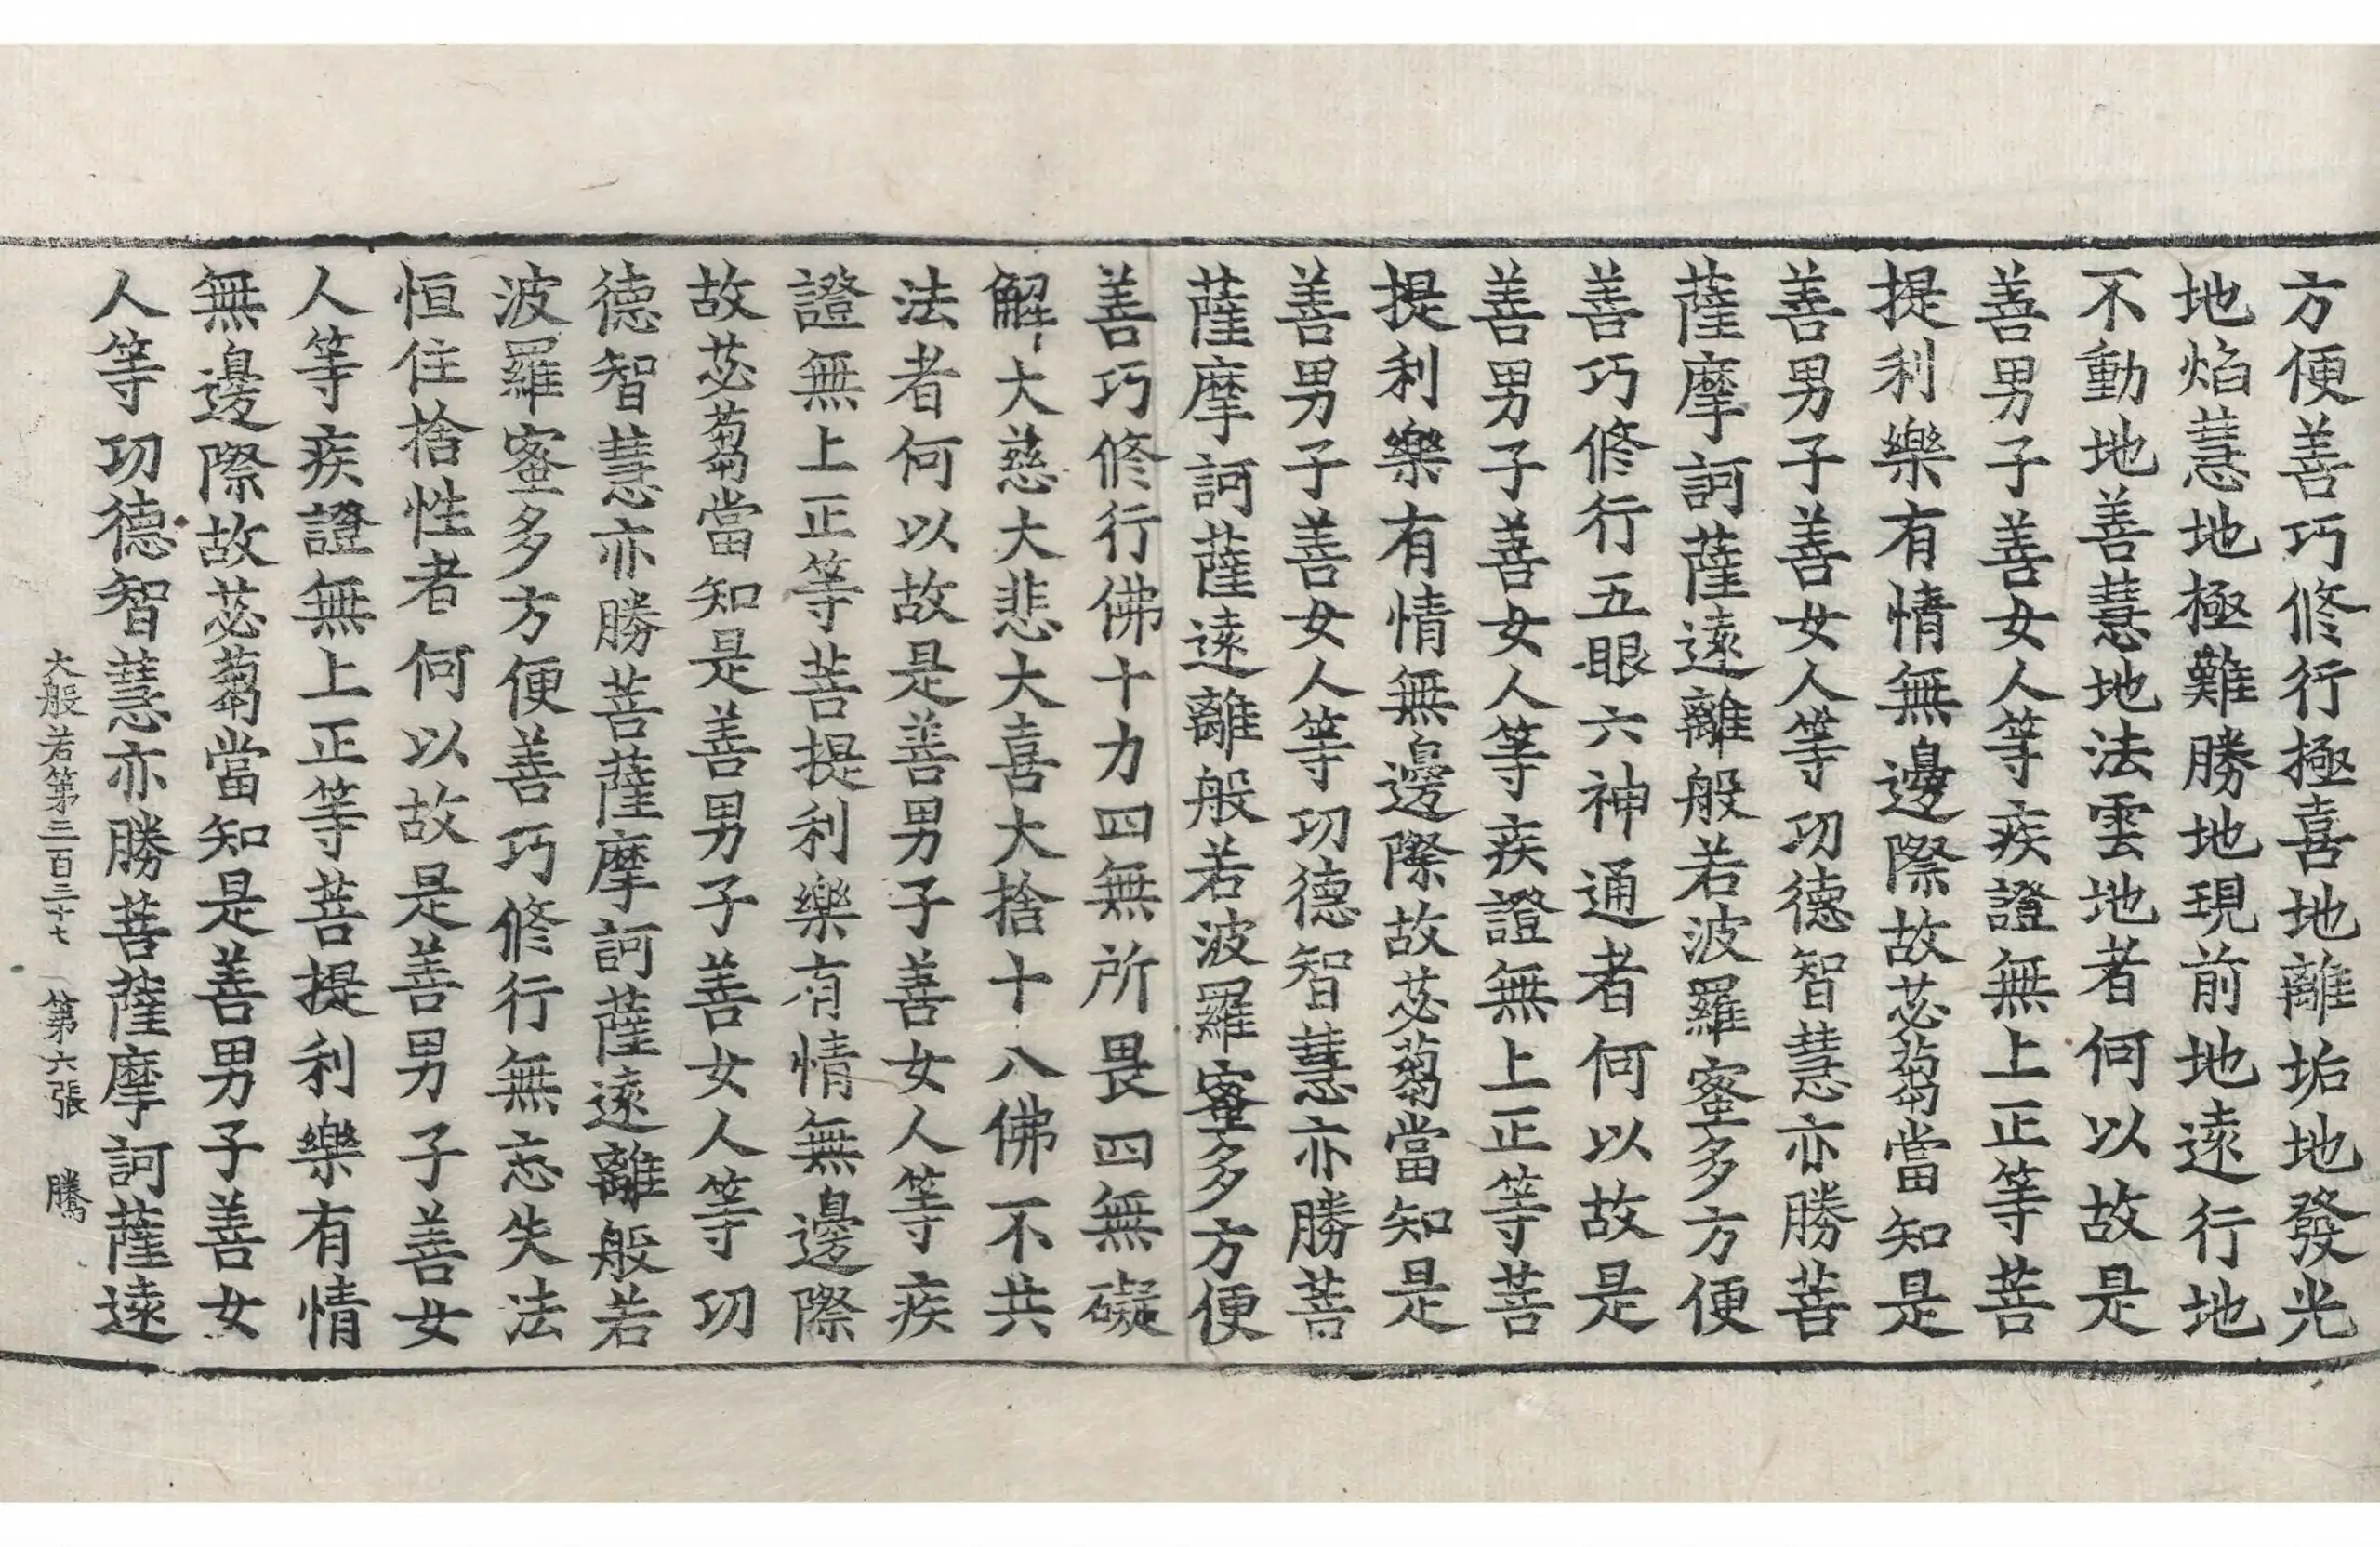 方便善巧修行極喜地離垢地發光
地焰慧地極難勝地現前地遠行地
不動地善慧地法雲地者何以故是
善男子善女人等疾證無上正等菩
提利樂有情無邊際故苾蒭當知是
善男子善女人等功德智慧亦勝菩
薩摩訶薩遠離般若波羅蜜多方便
善巧修行五眼六神通者何以故是
善男子善女人等疾證無上正等菩
提利樂有情無邊際故苾蒭當知是
善男子善女人等功德智慧亦勝菩
薩摩訶薩遠離般若波羅蜜多方便
善巧修行佛十力四無所畏四無礙
解大慈大悲大喜大捨十八佛不共
法者何以故是善男子善女人等疾
證無上正等菩提利樂有情無邊際
故苾蒭當知是善男子善女人等功
德智慧亦勝菩薩摩訶薩遠離般若
波羅蜜多方便善巧修行無忘失法
恒住捨性者何以故是善男子善女
人等疾證無上正等菩提利樂有情
無邊際故苾蒭當知是善男子善女
人等功德智慧亦勝菩薩摩訶薩遠
大般若第三百三十七 第六張 騰